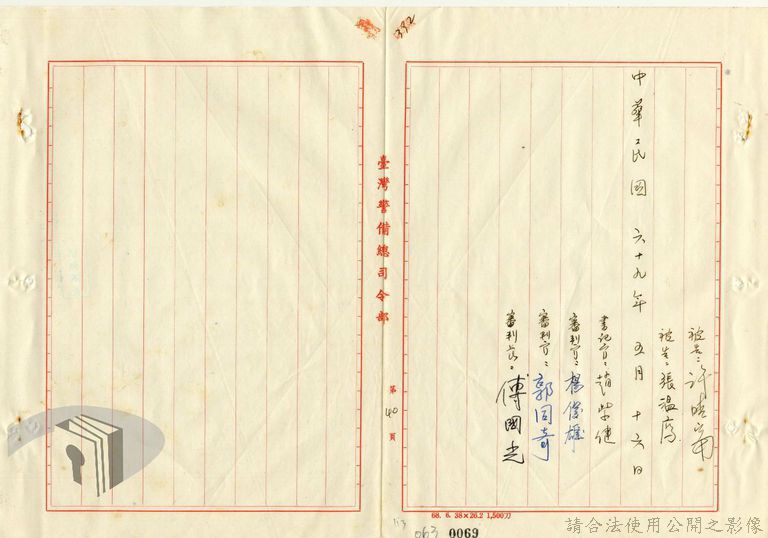 332
被告：許晴富
被告：張溫鷹
中華民國 六十九年 五月 十六日
書記官：趙榮健
審判官：楊俊雄
審判官：郭同奇
審判長：傅國光
臺灣警備總司令部
第 40 頁
68. 6. 38×26.2 1,500刀
113
063 0069
請合法使用公開之影像